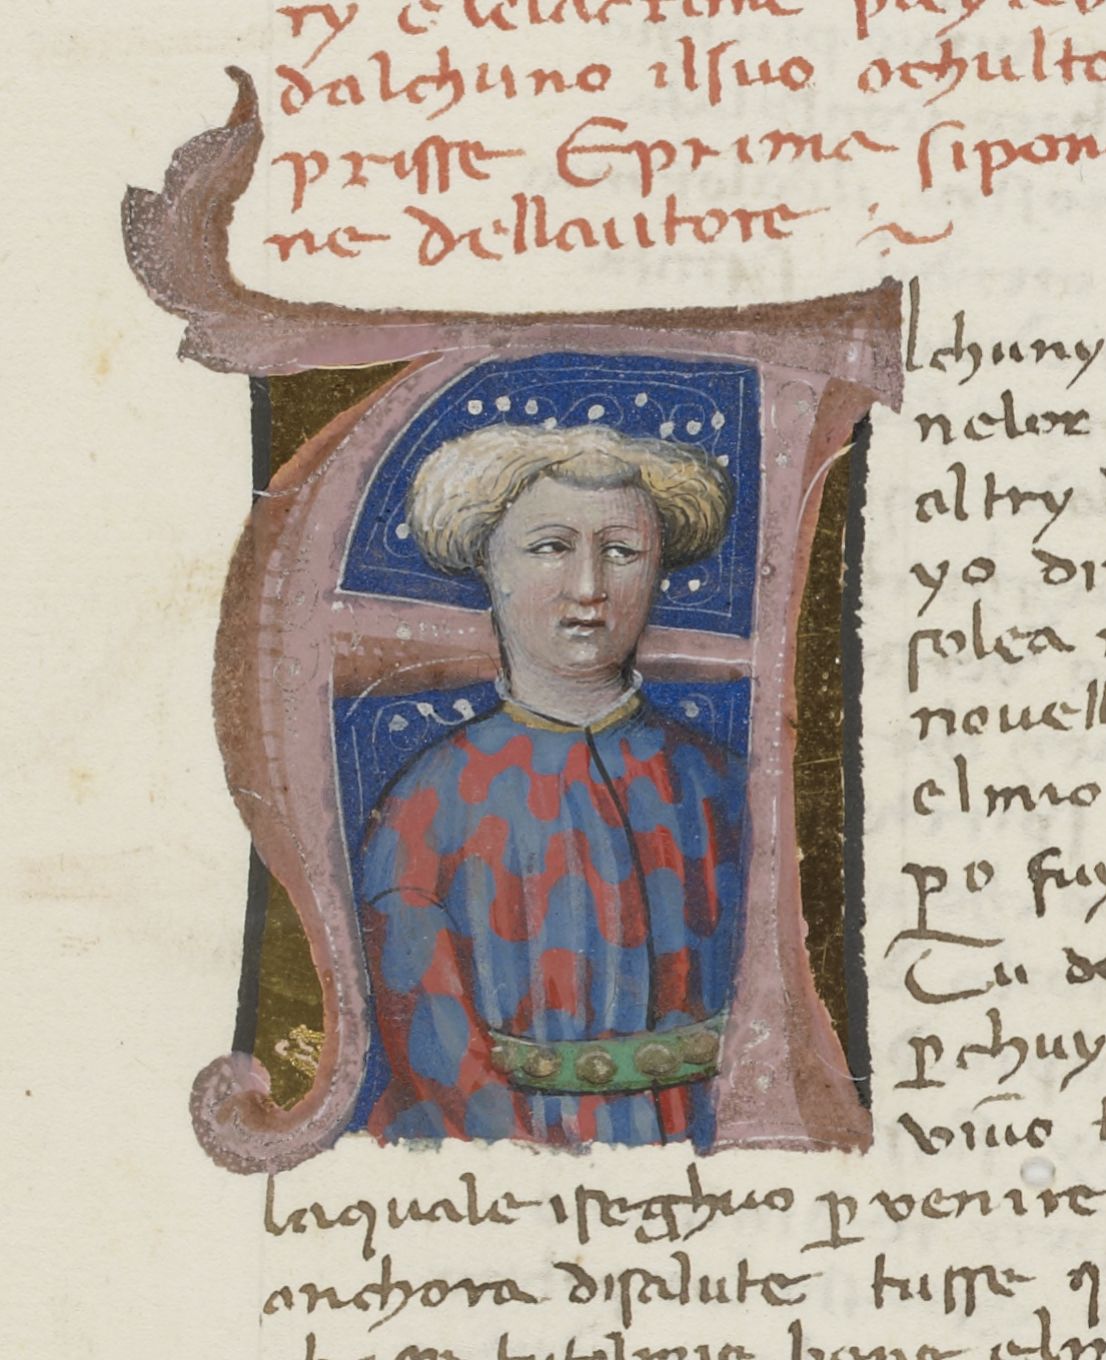 dalchuno ilsuo ochulto
prisse E prima sipon
ne dellautore
Alchuny
nelor
altry
yo di
solea
nouell
elmio
po fuy
Tu de
p chuy
laquale iseghuo p venire
anchora disalute tusse q